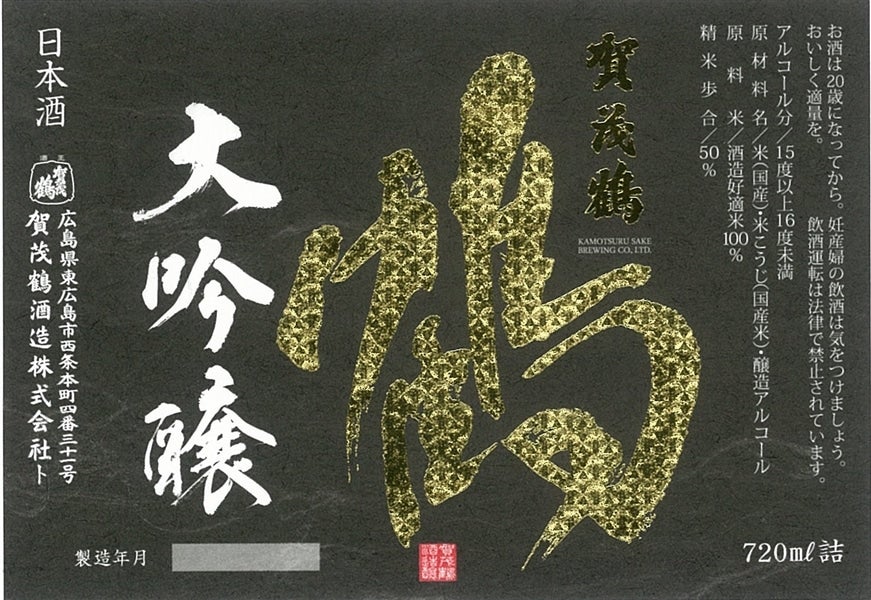 お酒は20歳になってから。妊産婦の飲酒は気をつけましょう。
おいしく適量を。 飲酒運転は法律で禁止されています。
アルコール分／15度以上16度未満
原材料名／米(国産)・米こうじ(国産米)・醸造アルコール
原料米／酒造好適米100%
精米歩合／50%
賀茂鶴
KAMOTSURU SAKE
BREWING CO., LTD.
鶴
大吟醸
日本酒
賀茂鶴
広島県東広島市西条本町四番三十一号
賀茂鶴酒造株式会社ト
製造年月
720㎖詰